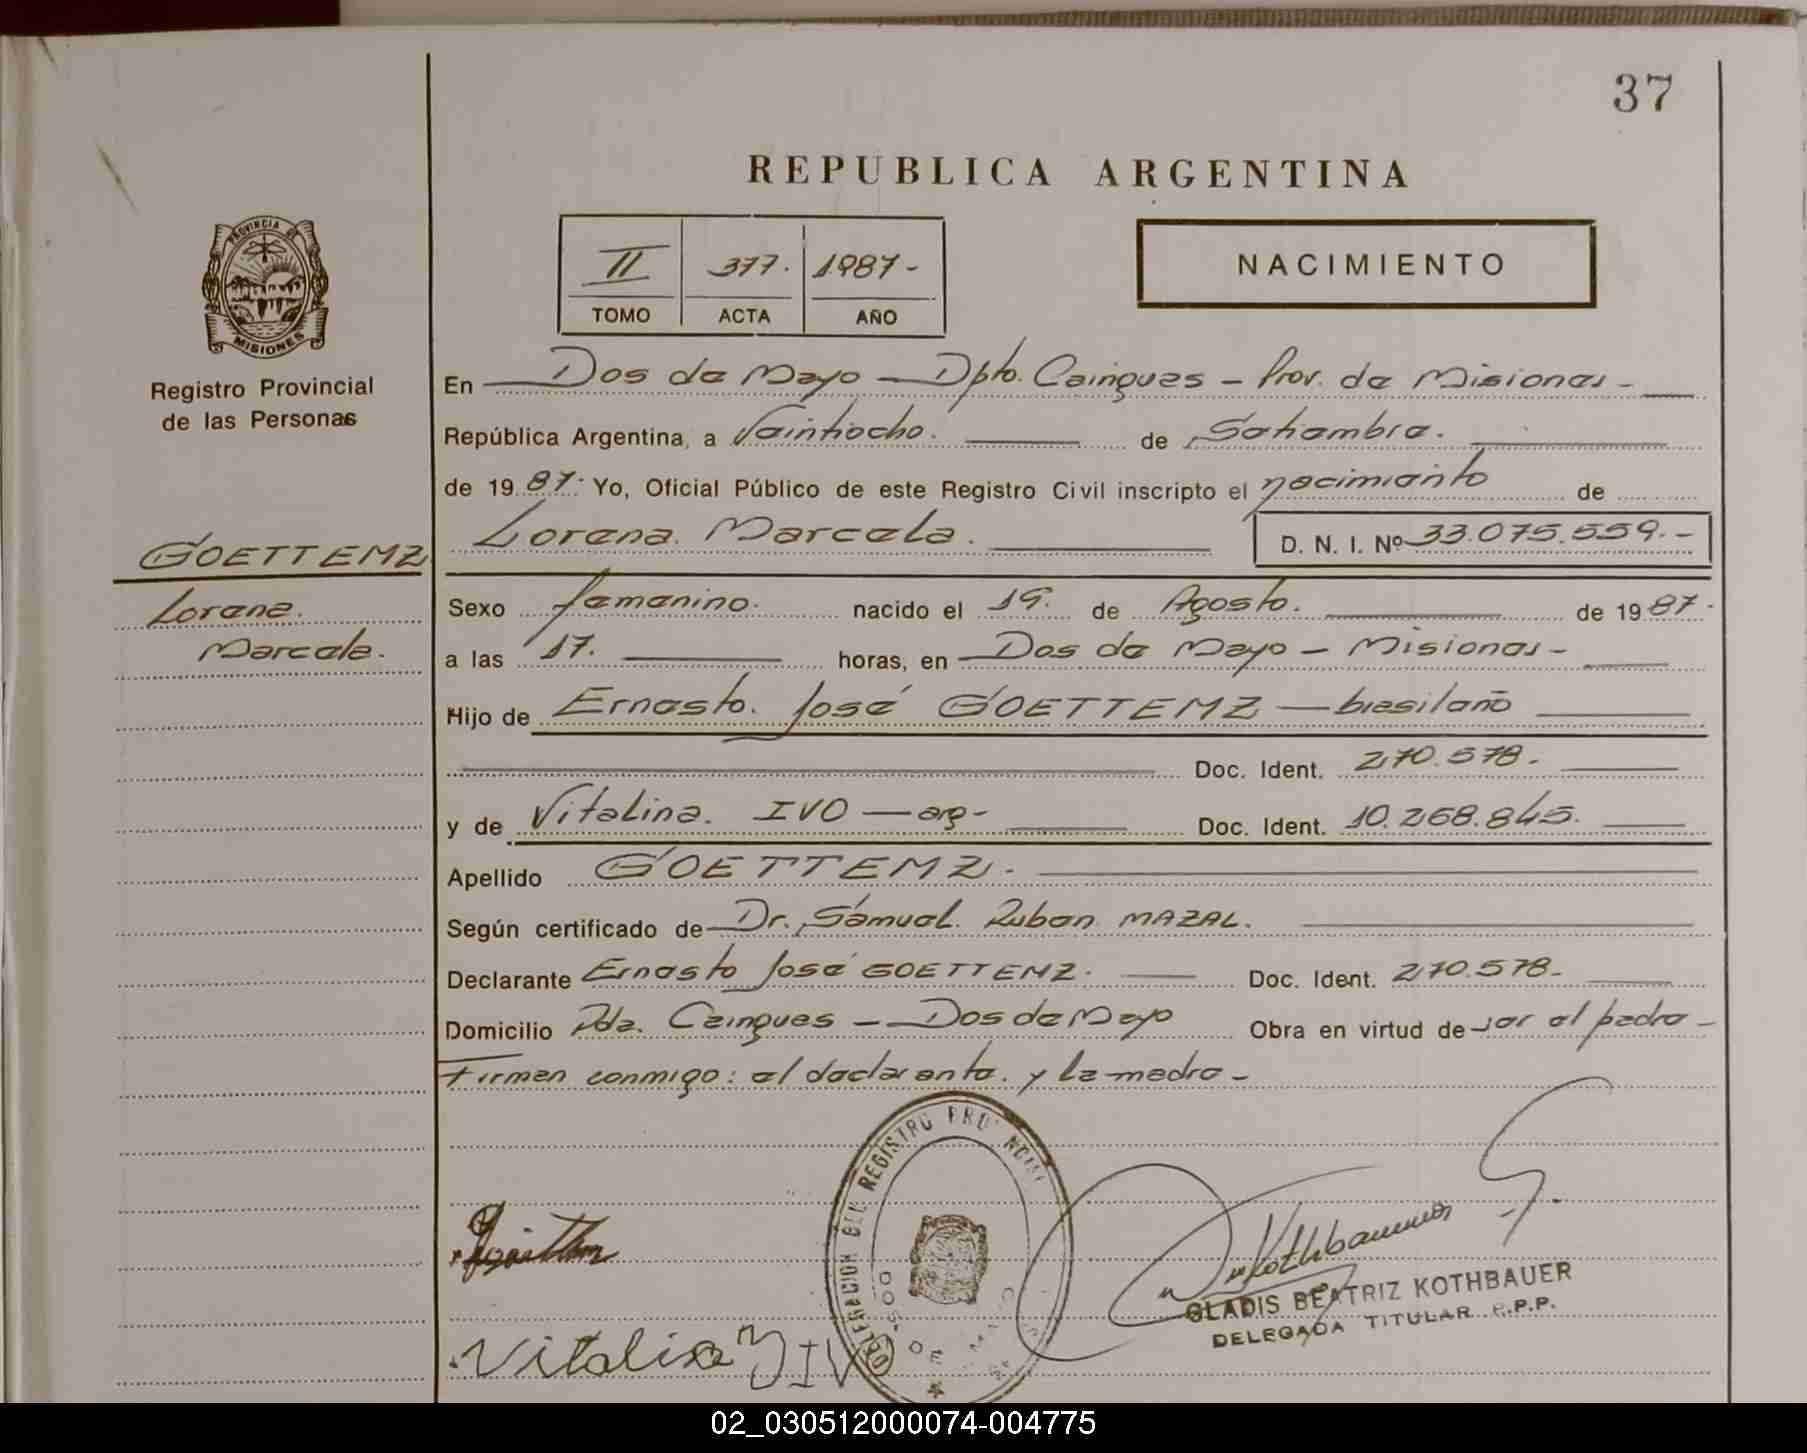 37
REPUBLICA ARGENTINA
II 377. 1987-
TOMO ACTA AÑO
NACIMIENTO
PROVINCIA DE MISIONES
Registro Provincial
de las Personas
GOETTEMZ
Lorena
Marcela.
En Dos de Mayo - Dpto. Cainguas - Prov. de Misiones -
República Argentina, a Veintiocho. de Setiembre.
de 1987. Yo, Oficial Público de este Registro Civil inscripto el nacimiento de
Lorena Marcela. D. N. I. Nº 33.075.559.-
Sexo femenino. nacido el 19. de Agosto. de 1987.
a las 17. horas, en Dos de Mayo - Misiones -
Hijo de Ernesto José GOETTEMZ - brasileño
Doc. Ident. 270.578.
y de Vitalina IVO - arg- Doc. Ident. 10.268.845.
Apellido GOETTEMZ.
Según certificado de Dr. Samuel Ruben MAZAL.
Declarante Ernesto José GOETTEMZ. Doc. Ident. 270.578-
Domicilio Pda. Cainguas - Dos de Mayo Obra en virtud de ser el padre -
Firman conmigo: el declarante y la madre -
DELEGACION REGISTRO
DOS DE MAYO
Kothbauer
GLADIS BEATRIZ KOTHBAUER
DELEGADA TITULAR R.P.P.
Vitalina IVO
02_030512000074-004775